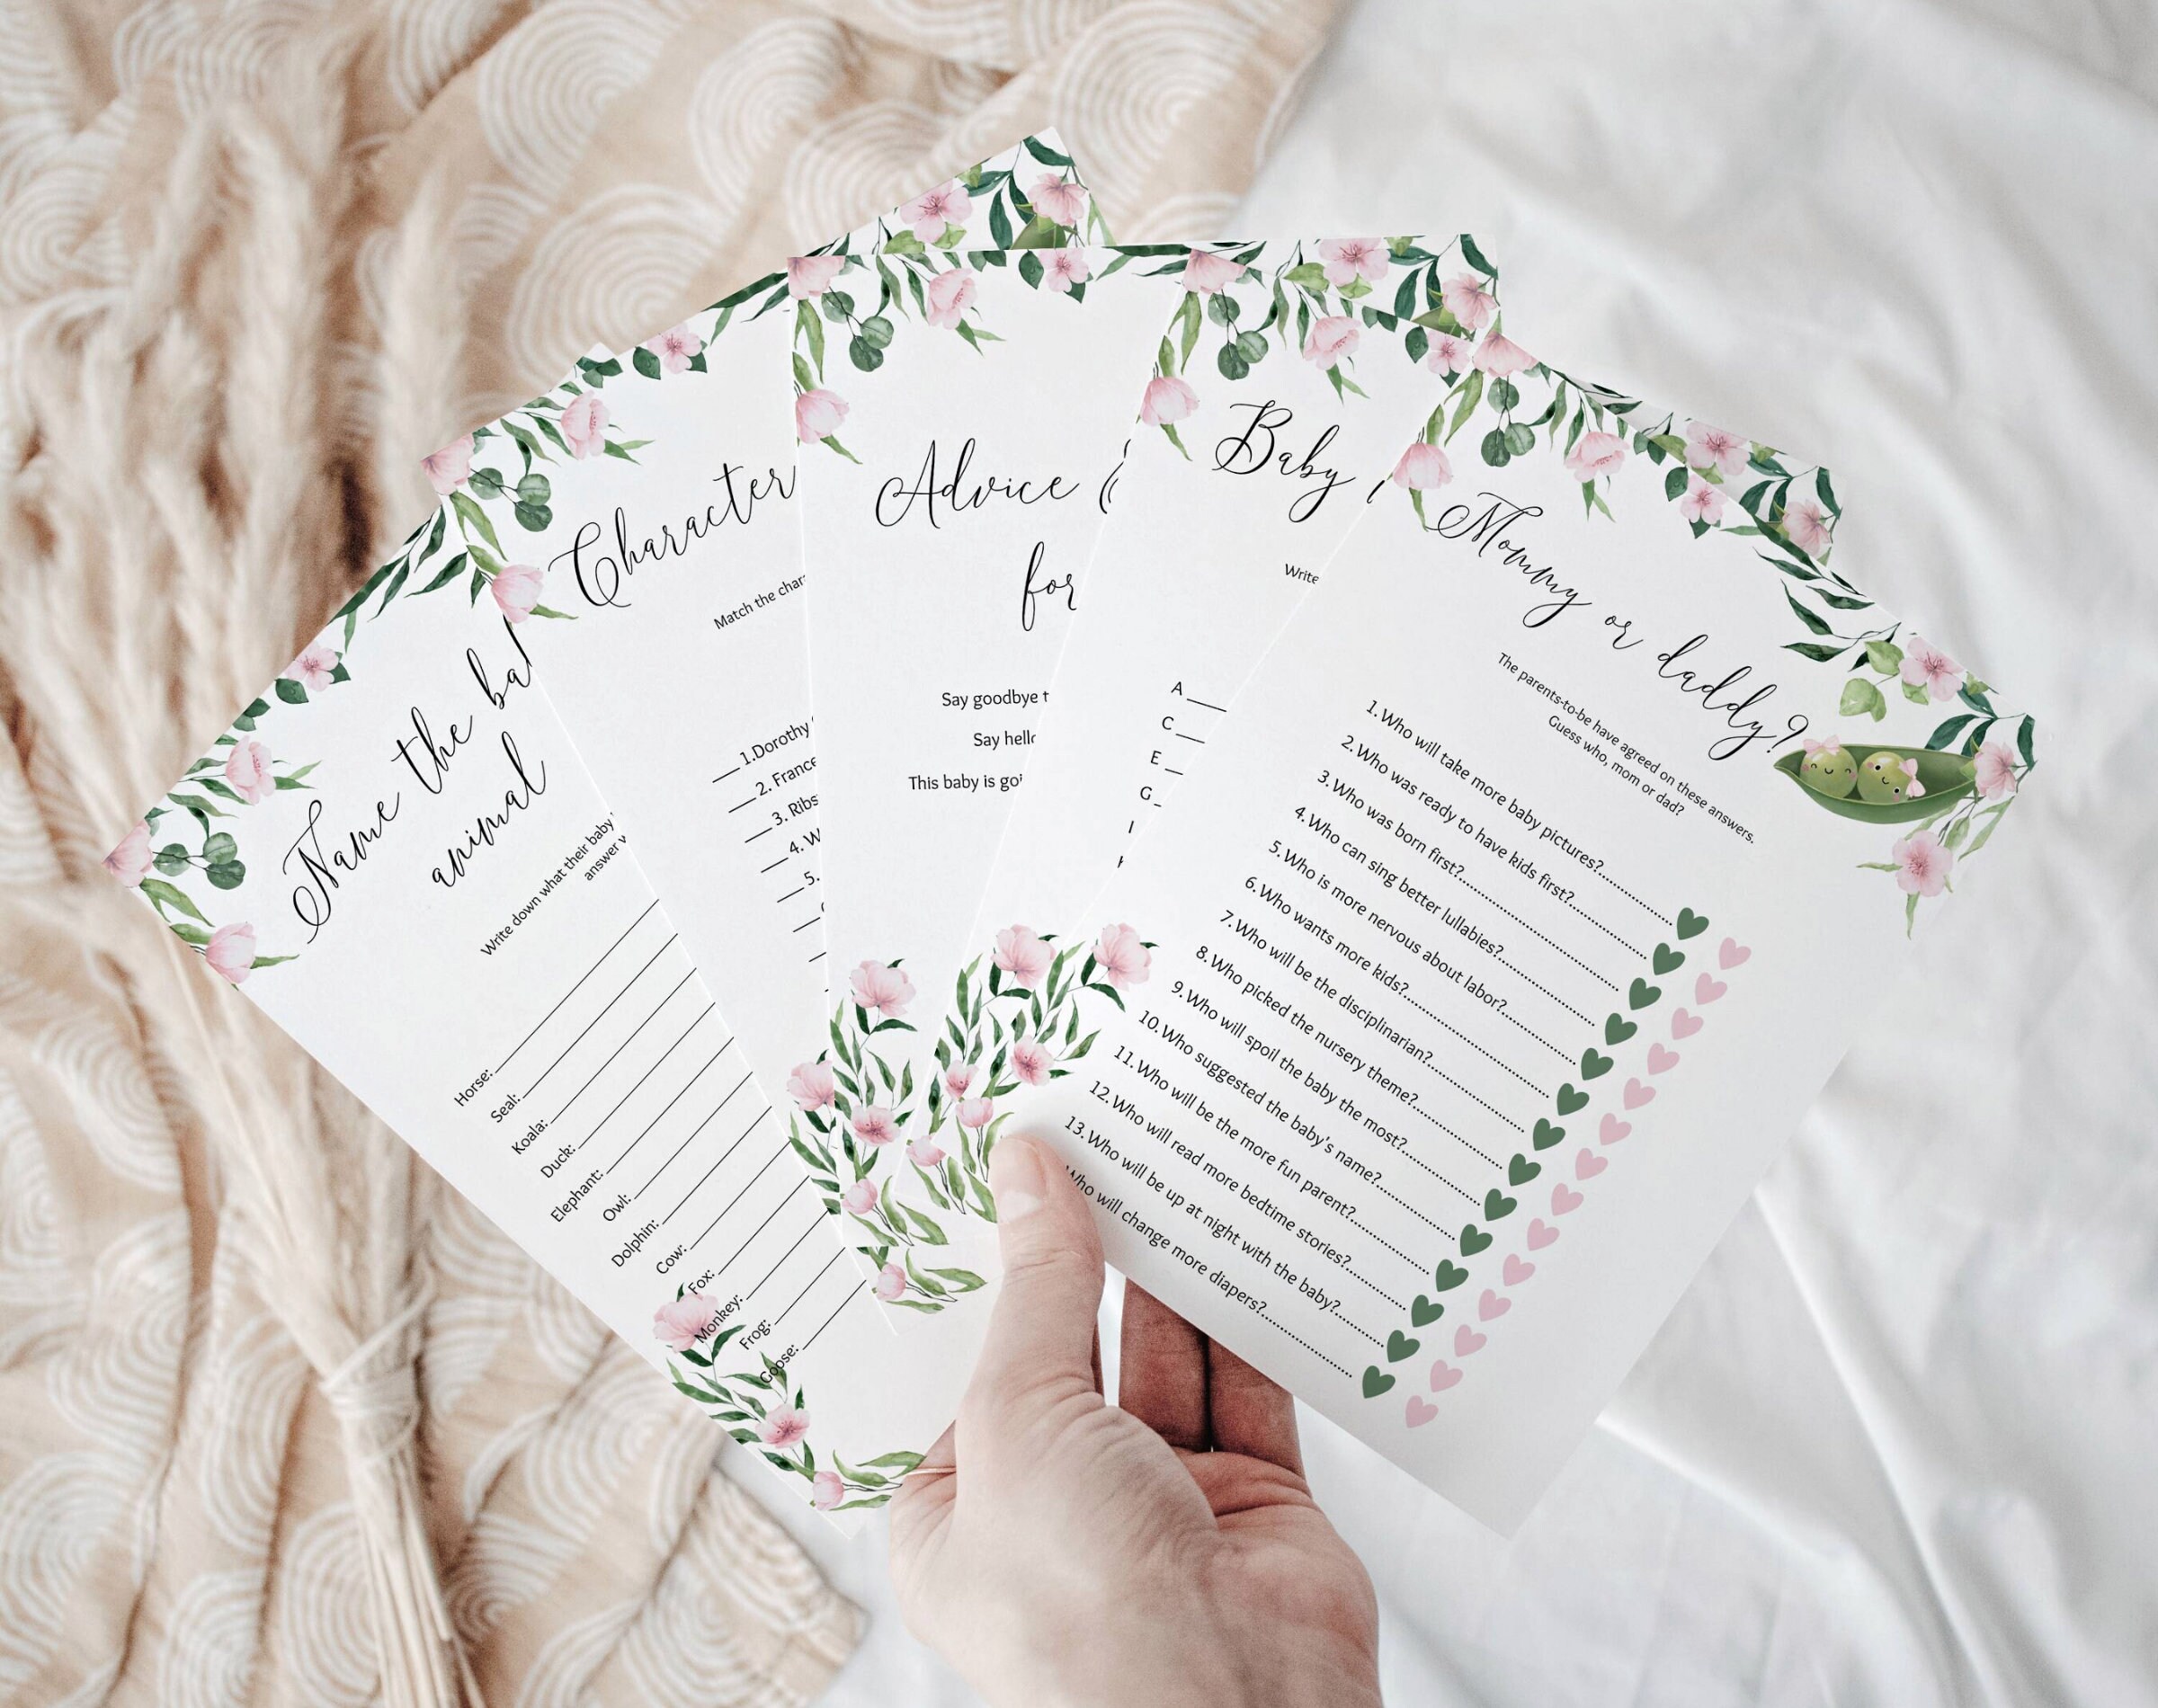 Name the
animal
Write down what their baby
answer
Horse:
Seal:
Koala:
Duck:
Elephant:
Owl:
Dolphin:
Cow:
Fox:
Monkey:
Frog:
Goose:
Character
Match the
1.Dorothy
2.
3.
4.
5.
Advice
for
Say goodbye
Say
This baby is
Baby
Write
A
C
E
G
I
Mommy or daddy?
The parents-to-be have agreed on these answers.
Guess who, mom or dad?
1.Who will take more baby pictures?
2.Who was ready to have kids first?
3.Who was born first?
4.Who can sing better lullabies?
5.Who is more nervous about labor?
6.Who wants more kids?
7.Who will be the disciplinarian?
8.Who picked the nursery theme?
9.Who will spoil the baby the most?
10.Who suggested the baby's name?
11.Who will be the more fun parent?
12.Who will read more bedtime stories?
13.Who will be up at night with the baby?
Who will change more diapers?